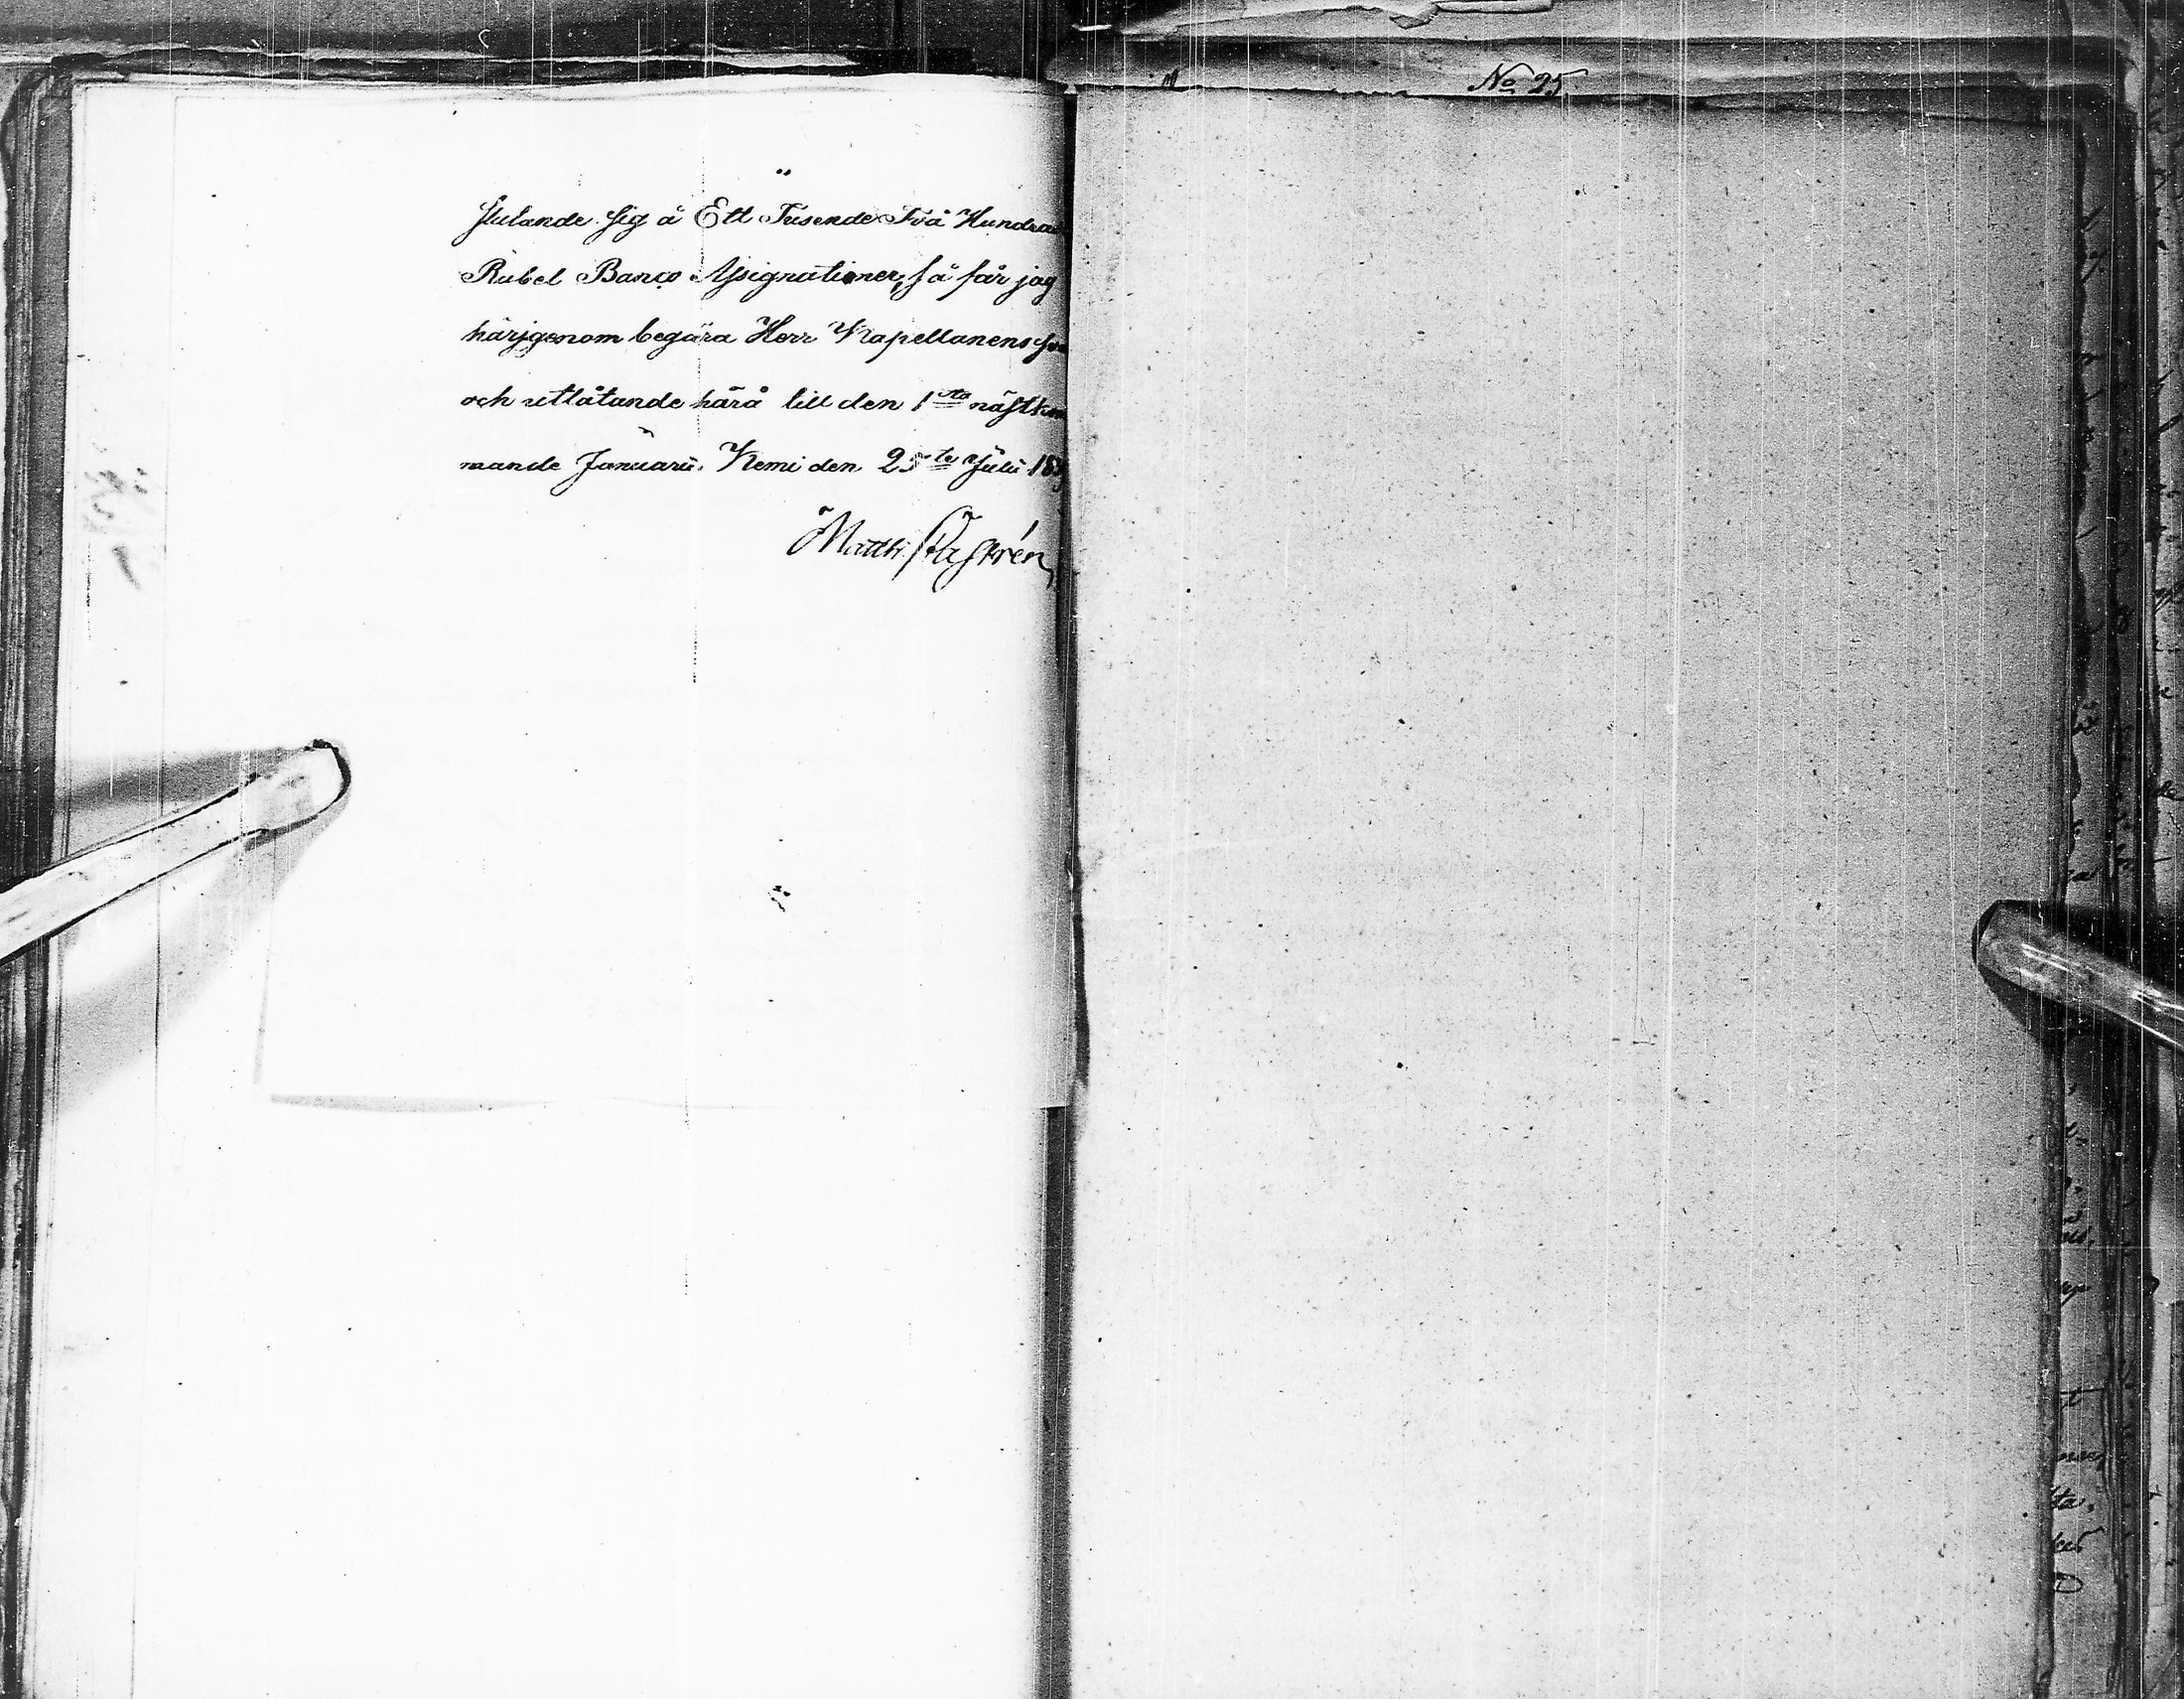 slutande sig å Ett Tusende Två Hundra
Rubel Banco Assignationer, så får jag
härigenom begära Herr Kapellanens
och utlåtande härå till den 1sta nästkom
mande Januarii. Kemi den 25te Julii 18
Matth. Castrén
No 25